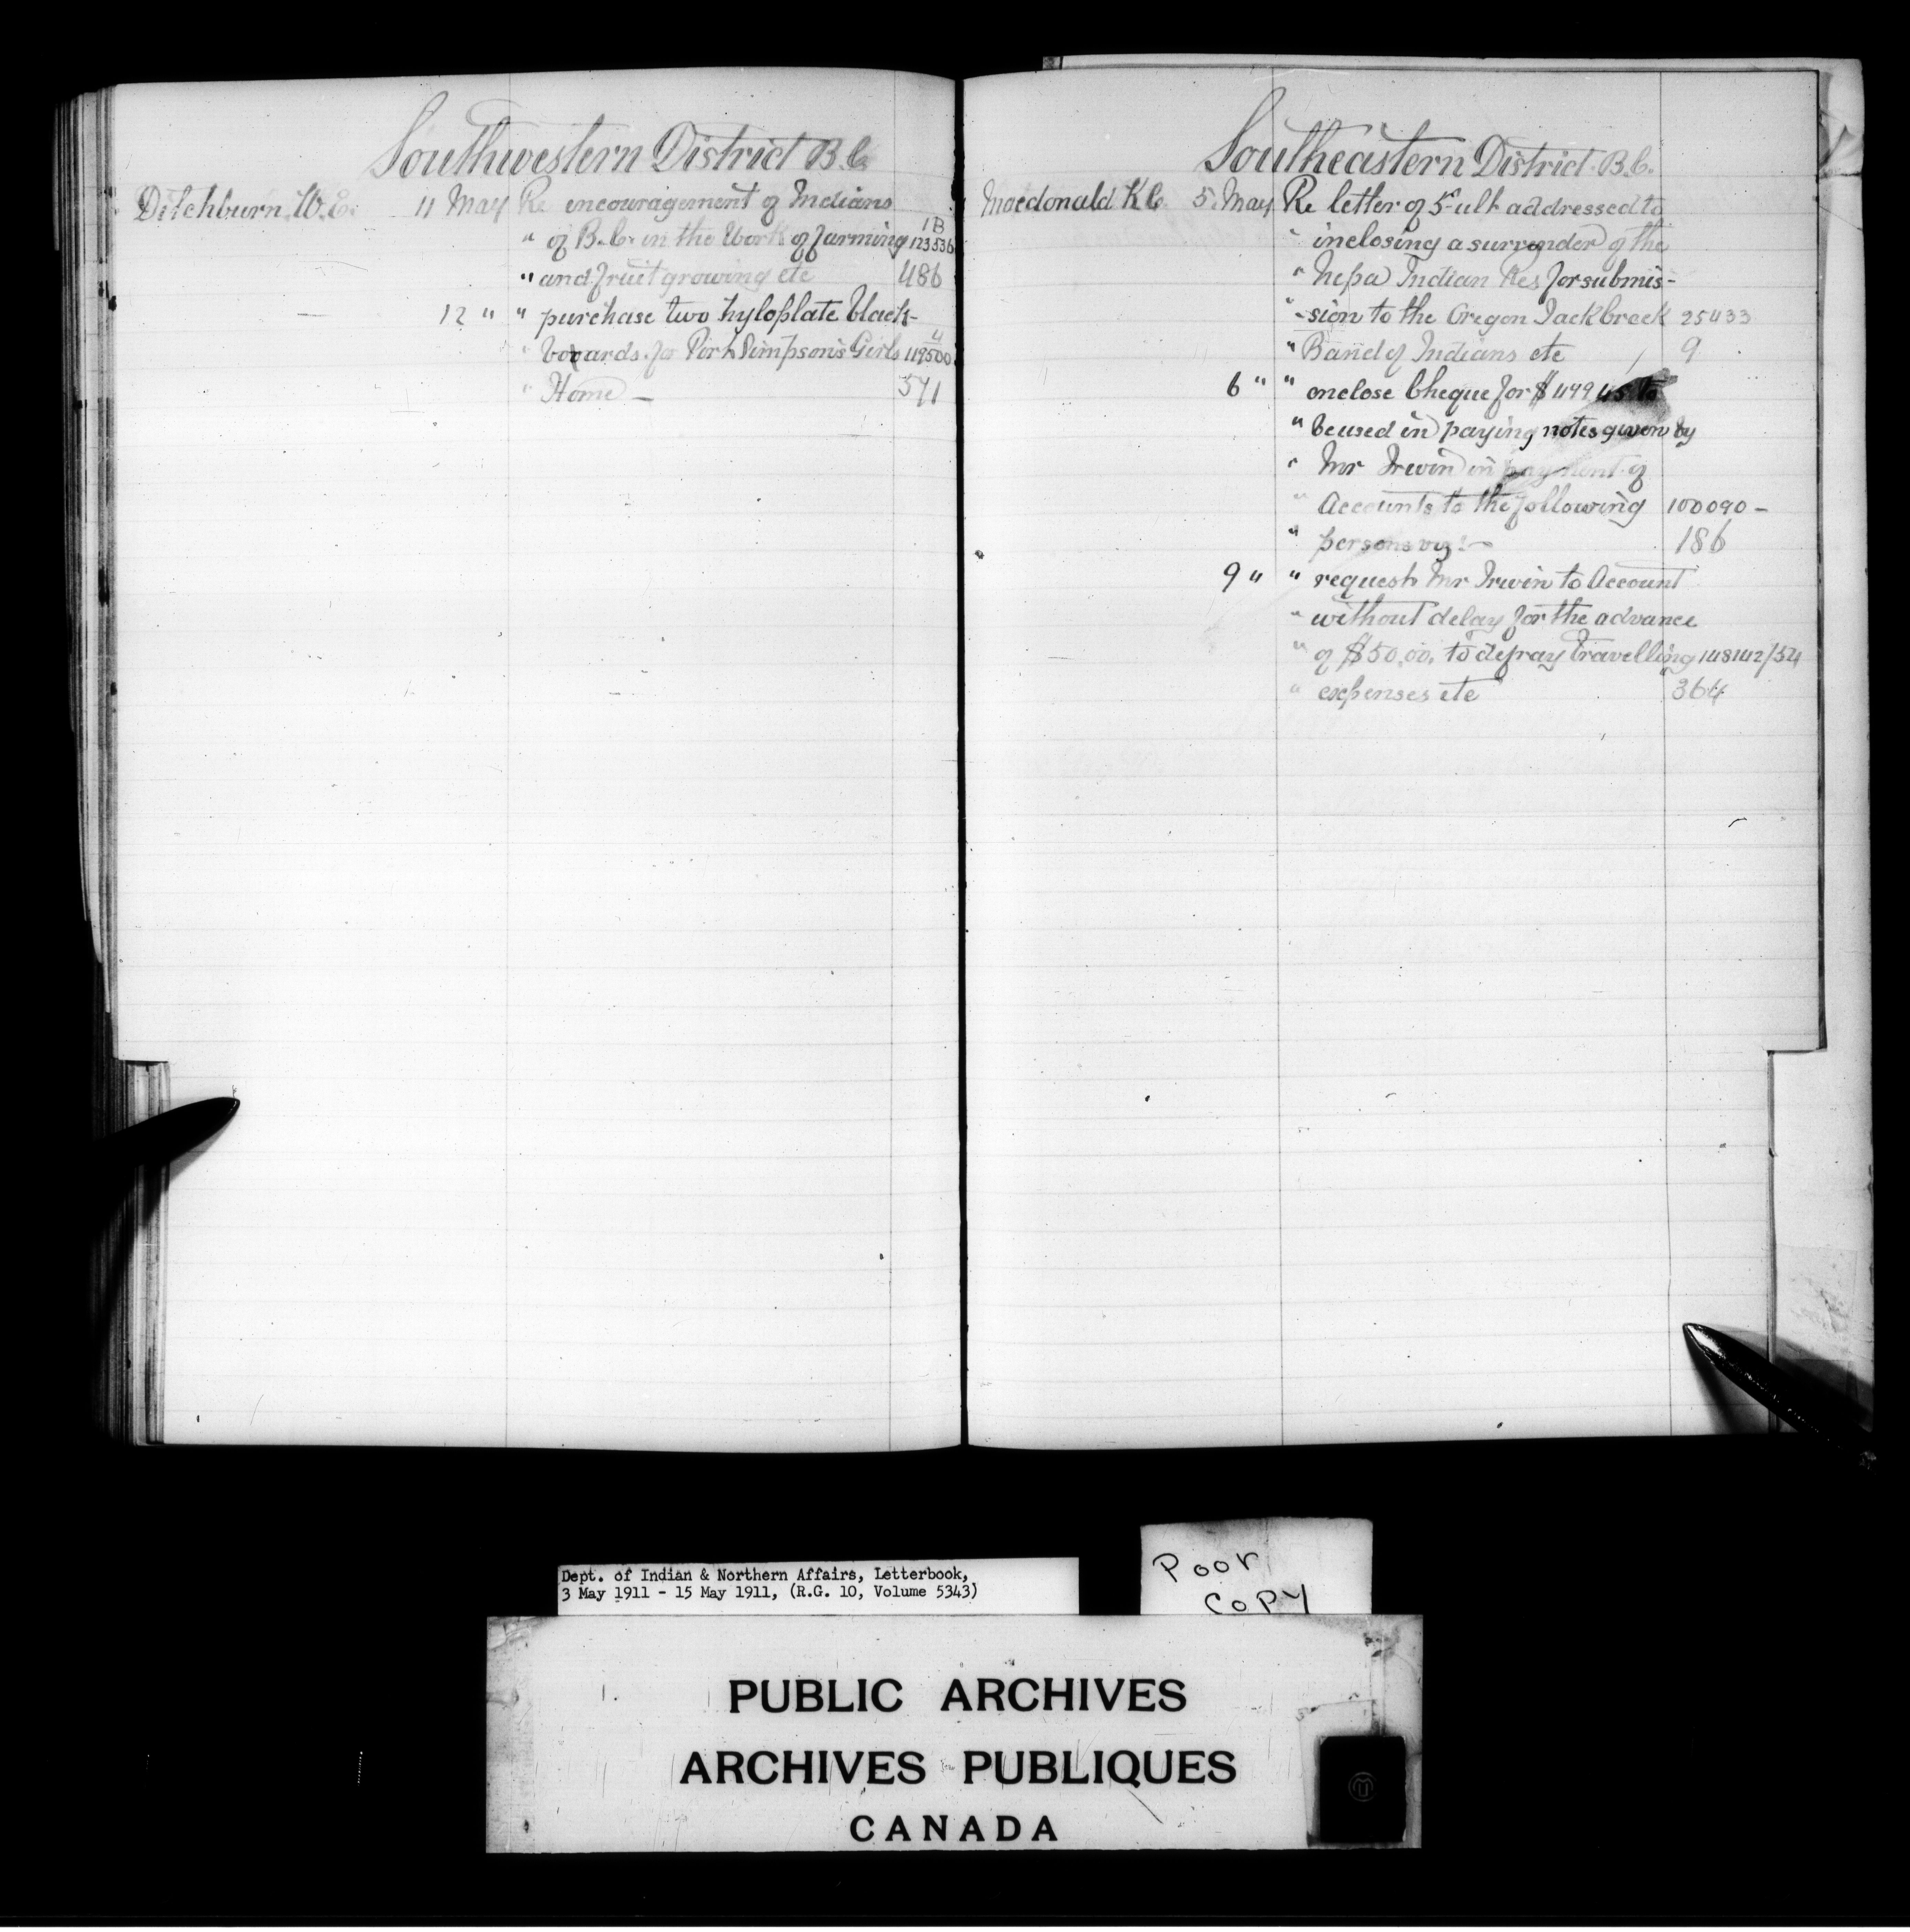 Southwestern District B.C.
Ditchburn. W.E. 11 May Re encouragement of Indians
1B
" of B.C. in the Work of farming 123536
" and fruit growing etc 486
12 " " purchase two hyloplate black-
4
" boards. for Port Simpson's Girls 119500
" Home — 571
Southeastern District. B.C.
Macdonald K C. 5. May Re letter of 5- ult addressed to
" inclosing a surrender of the
" Nepa Indian Res for submis-
" -sion to the Oregon Jack Creek 25433
" Band of Indians etc 9
6 " " enclose Cheque for $ 449 45 to
" be used in paying notes given by
" Mr Irwin in payment of
" Accounts to the following 100090 -
" persons viz :- 186
9 " " request Mr Irwin to Account
" without delay for the advance
" of $50.00. to defray travelling 148142/54
" expenses etc 364
Dept. of Indian & Northern Affairs, Letterbook,
3 May 1911 - 15 May 1911, (R.G. 10, Volume 5343)
Poor
COPY
PUBLIC ARCHIVES
ARCHIVES PUBLIQUES
CANADA